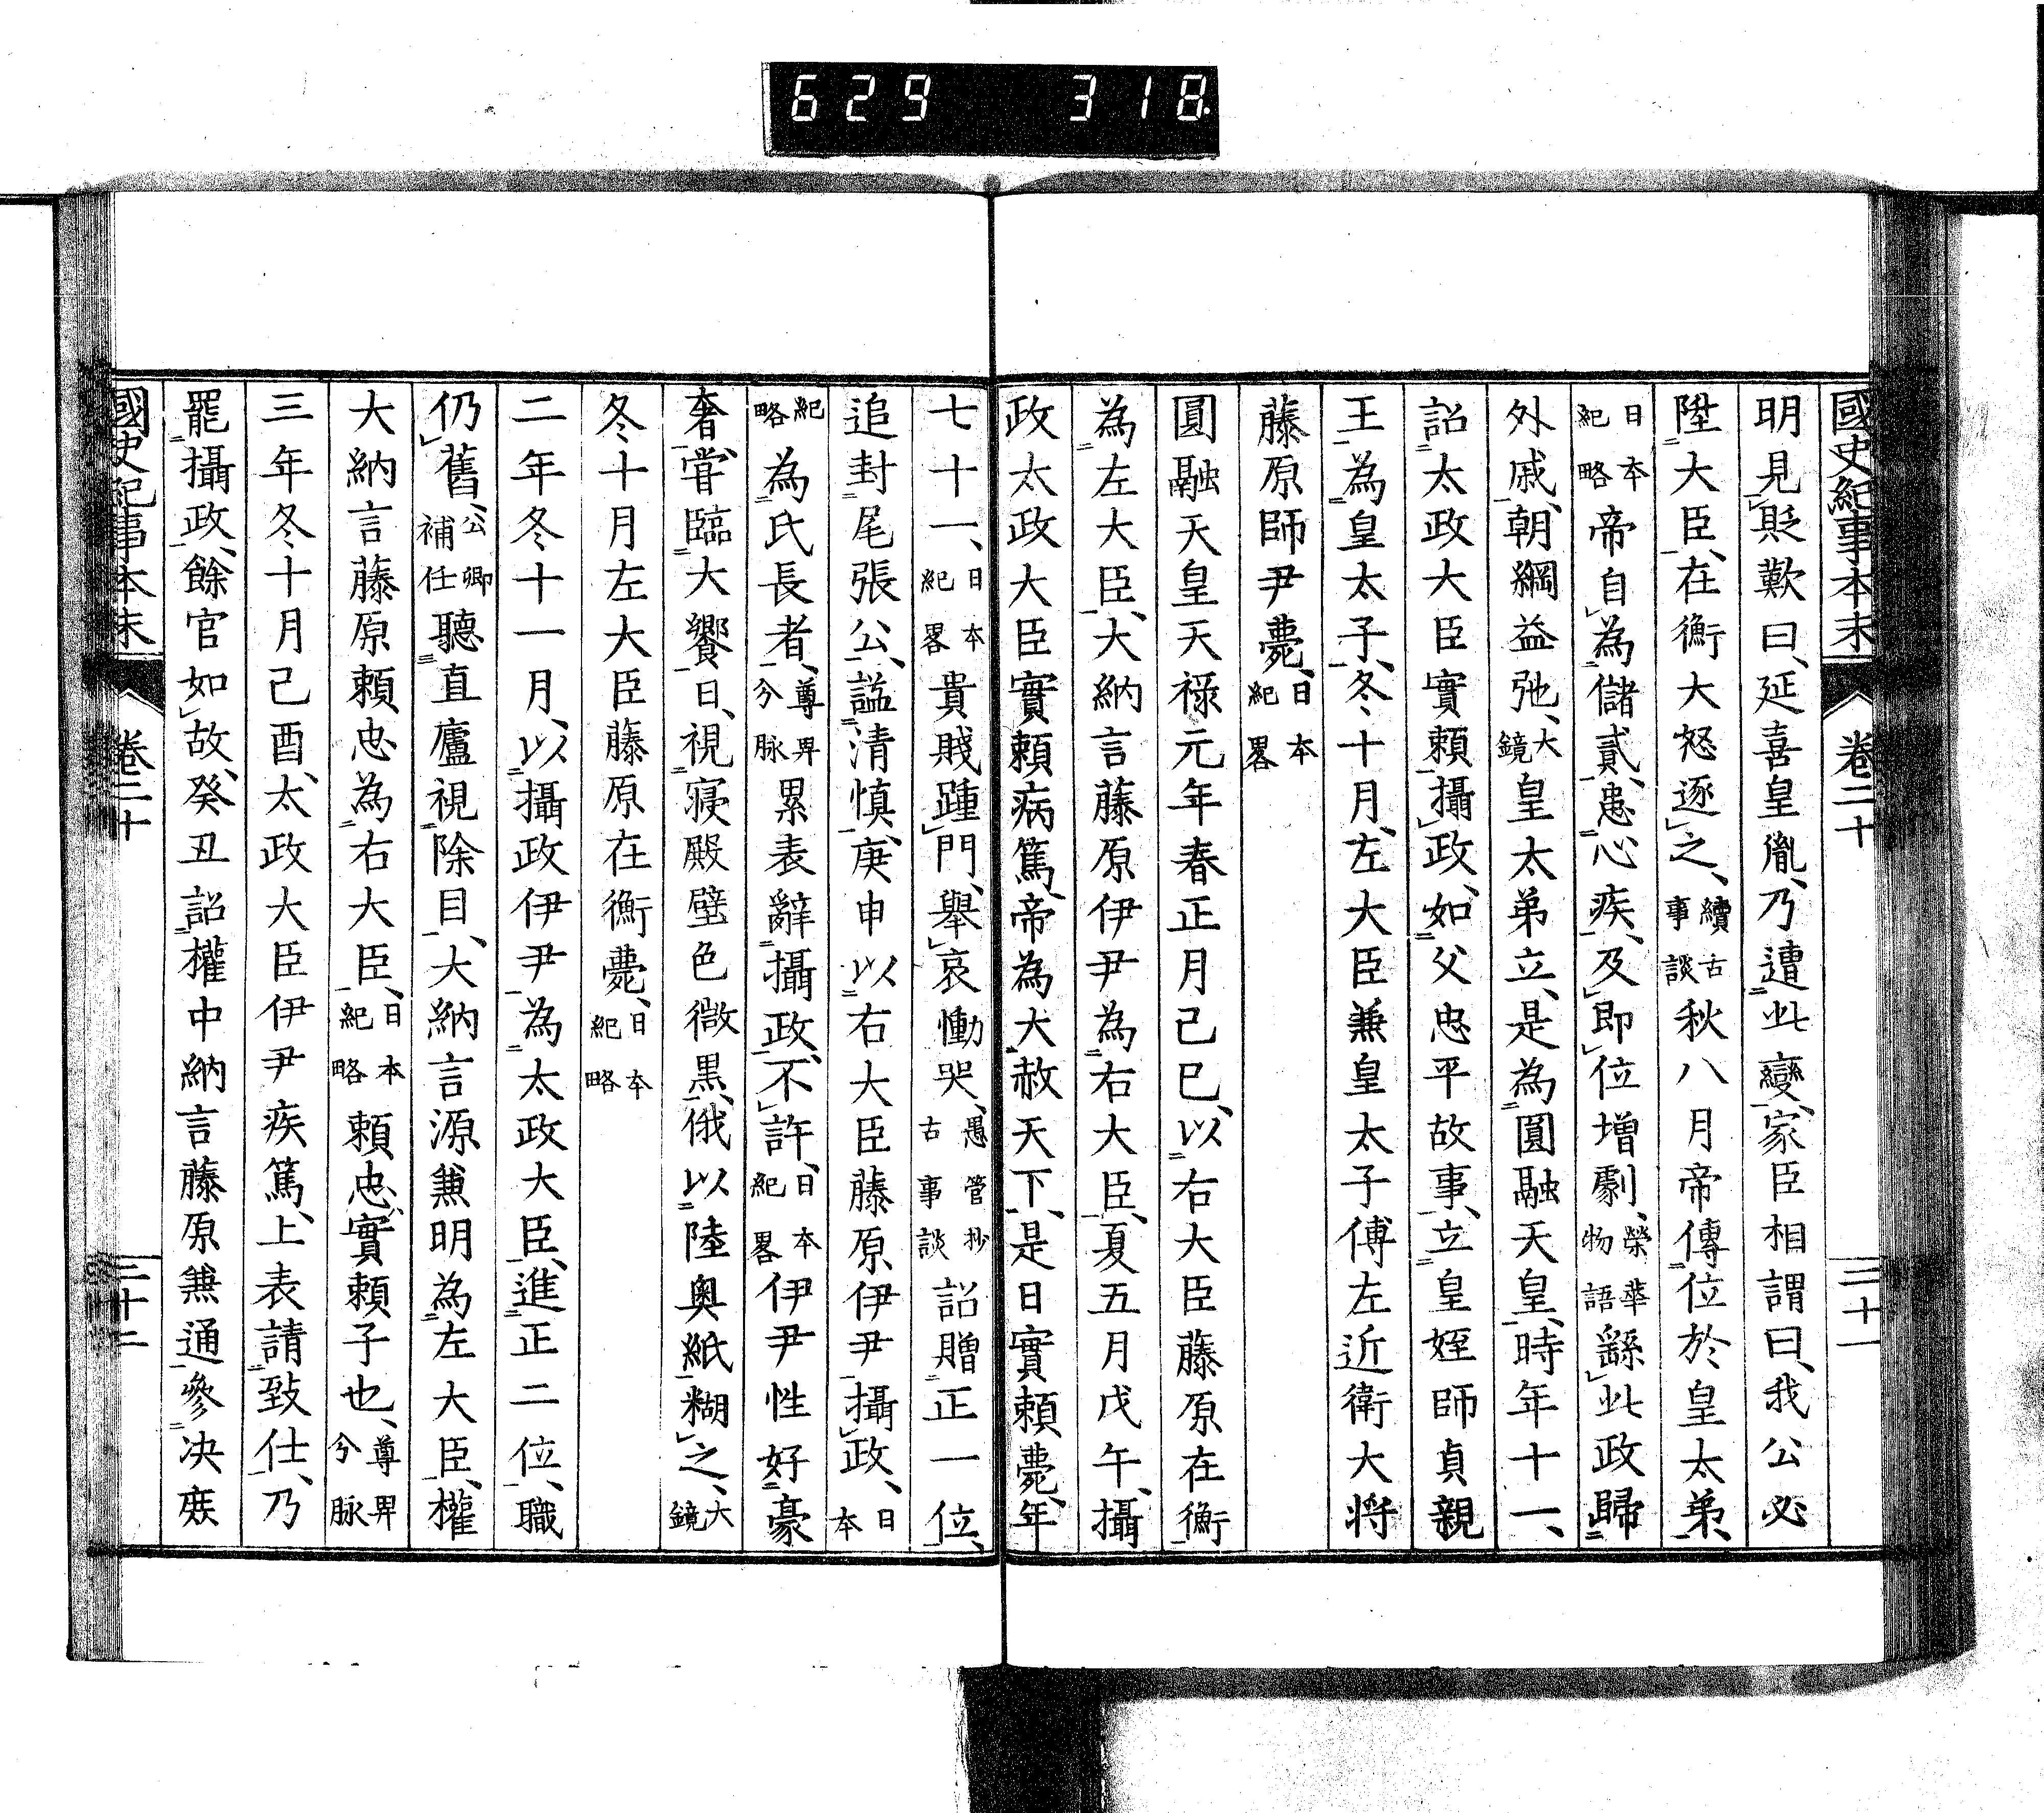 629 318
國史紀事本末 卷二十 三十一
明見貶歎曰、延喜皇胤、乃遭此變、家臣相謂曰、我公必
陞大臣、在衡大怒逐之、續古事談秋八月帝傳位於皇太弟、
日本紀略帝自為儲貳、患心疾、及即位增劇、榮華物語繇此政歸
外戚、朝綱益弛、大鏡皇太弟立、是為圓融天皇、時年十一、
詔太政大臣實賴攝政、如父忠平故事、立皇姪師貞親
王為皇太子、冬十月、左大臣兼皇太子傅左近衛大將
藤原師尹薨、日本紀畧
圓融天皇天祿元年春正月己巳、以右大臣藤原在衡
為左大臣、大納言藤原伊尹為右大臣、夏五月戊午、攝
政太政大臣實賴病篤、帝為大赦天下、是日實賴薨、年
七十一、日本紀畧貴賤踵門、舉哀慟哭、愚管抄古事談詔贈正一位、
追封尾張公、謚清慎、庚申以右大臣藤原伊尹攝政、日本
紀略為氏長者、尊卑分脉累表辭攝政、不許、日本紀畧伊尹性好豪
奢、嘗臨大饗日、視寢殿壁色微黑、俄以陸奧紙糊之、大鏡
冬十月左大臣藤原在衡薨、日本紀略
二年冬十一月、以攝政伊尹為太政大臣、進正二位、職
仍舊、公卿補任聽直廬視除目、大納言源兼明為左大臣、權
大納言藤原賴忠為右大臣、日本紀略賴忠實賴子也、尊卑分脉
三年冬十月己酉、太政大臣伊尹疾篤、上表請致仕、乃
罷攝政、餘官如故、癸丑詔權中納言藤原兼通參決庶
國史紀事本末 卷二十 三十二